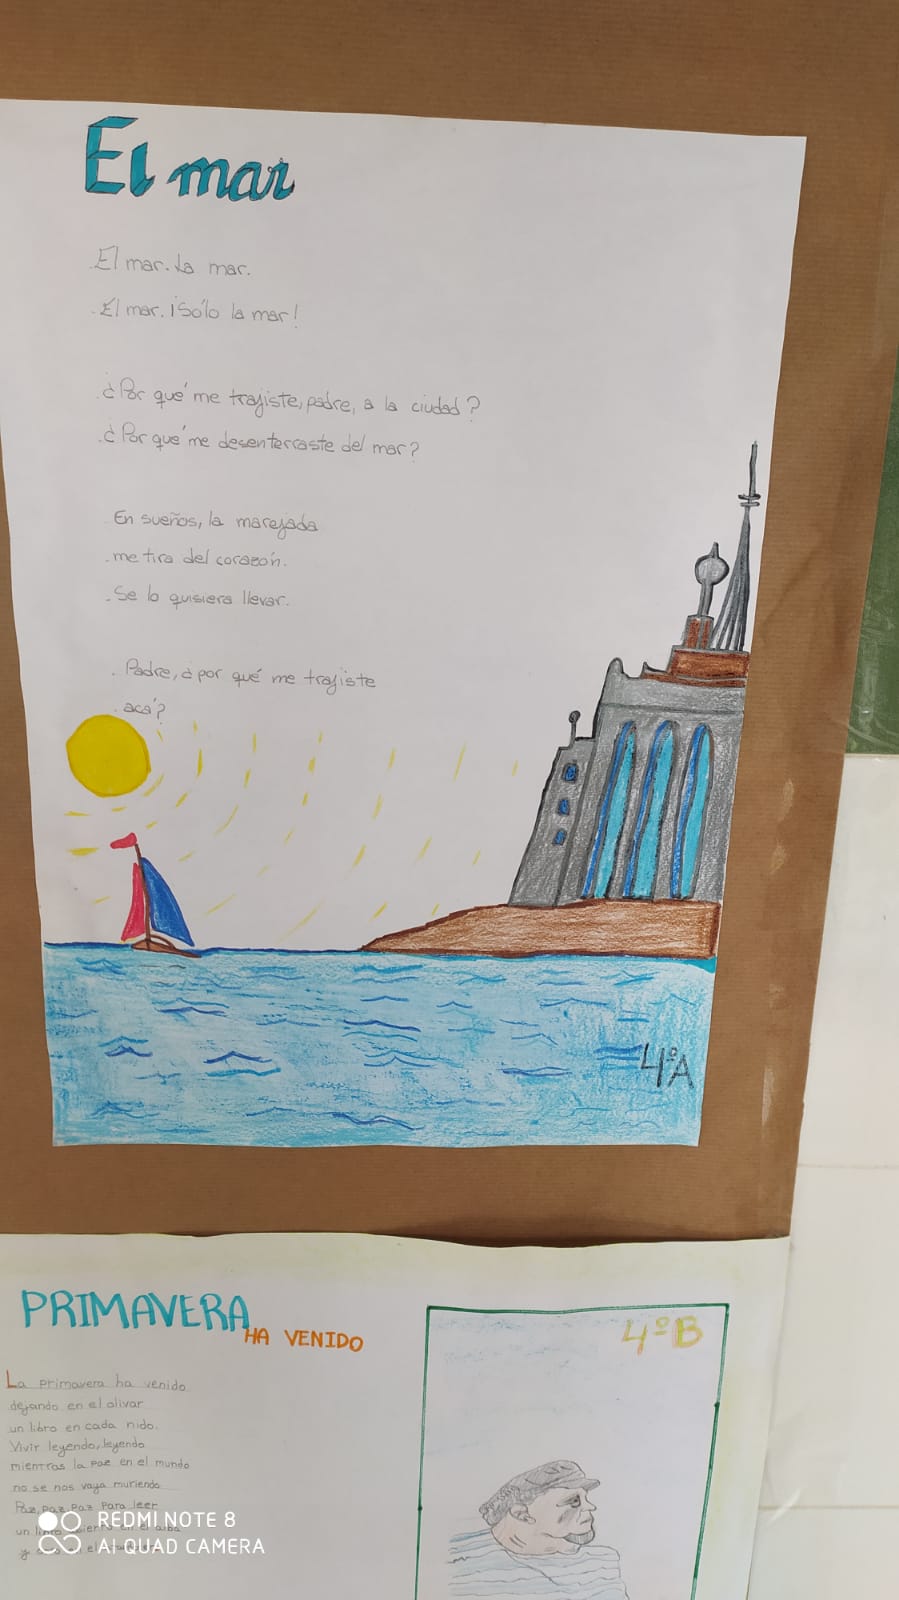 El mar
El mar. La mar.
El mar. ¡Sólo la mar!
¿Por qué me trajiste, padre, a la ciudad?
¿Por qué me desenterraste del mar?
En sueños, la marejada
me tira del corazón.
Se lo quisiera llevar.
Padre, ¿por qué me trajiste
acá?
4ºA
PRIMAVERA
HA VENIDO
4ºB
La primavera ha venido
dejando en el olivar
un libro en cada nido.
Vivir leyendo, leyendo
mientras la paz en el mundo
no se nos vaya muriendo
Paz, paz, paz para leer
un
y el
REDMI NOTE 8
AI QUAD CAMERA